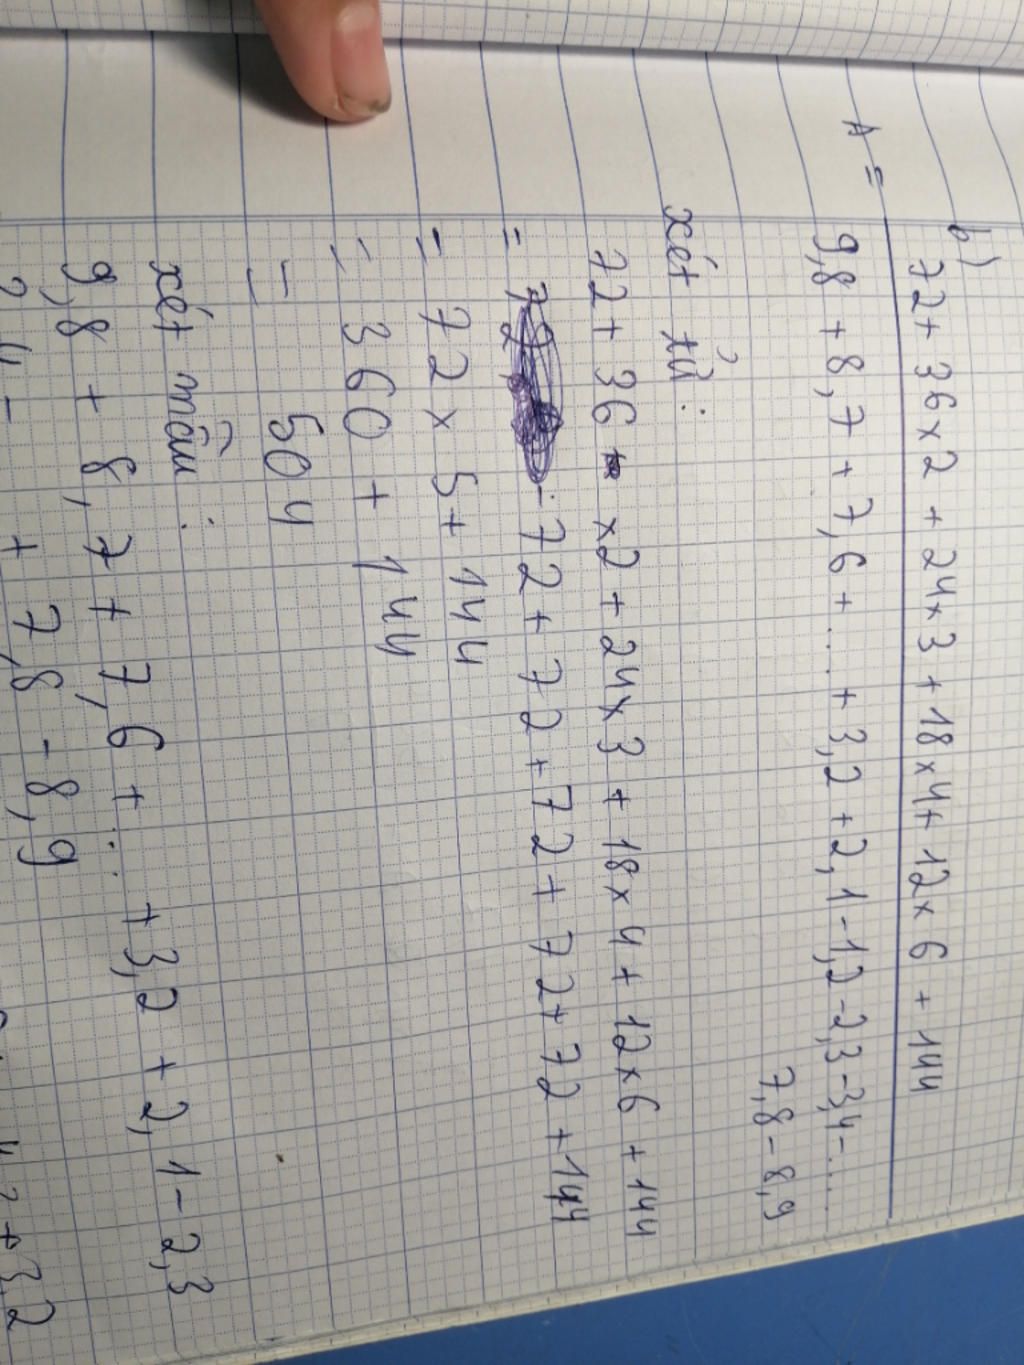 b)
72 + 36 x 2 + 24 x 3 + 18 x 4 + 12 x 6 + 144
A =
9,8 + 8,7 + 7,6 + ... + 3,2 + 2,1 - 1,2 - 2,3 - 3,4 - ...
7,8 - 8,9
xét tử :
72 + 36 x 2 + 24 x 3 + 18 x 4 + 12 x 6 + 144
= 72 + 72 + 72 + 72 + 72 + 144
= 72 x 5 + 144
= 360 + 144
= 504
xét mẫu :
9,8 + 8,7 + 7,6 + ... + 3,2 + 2,1 - 2,3
+ 7,8 - 8,9